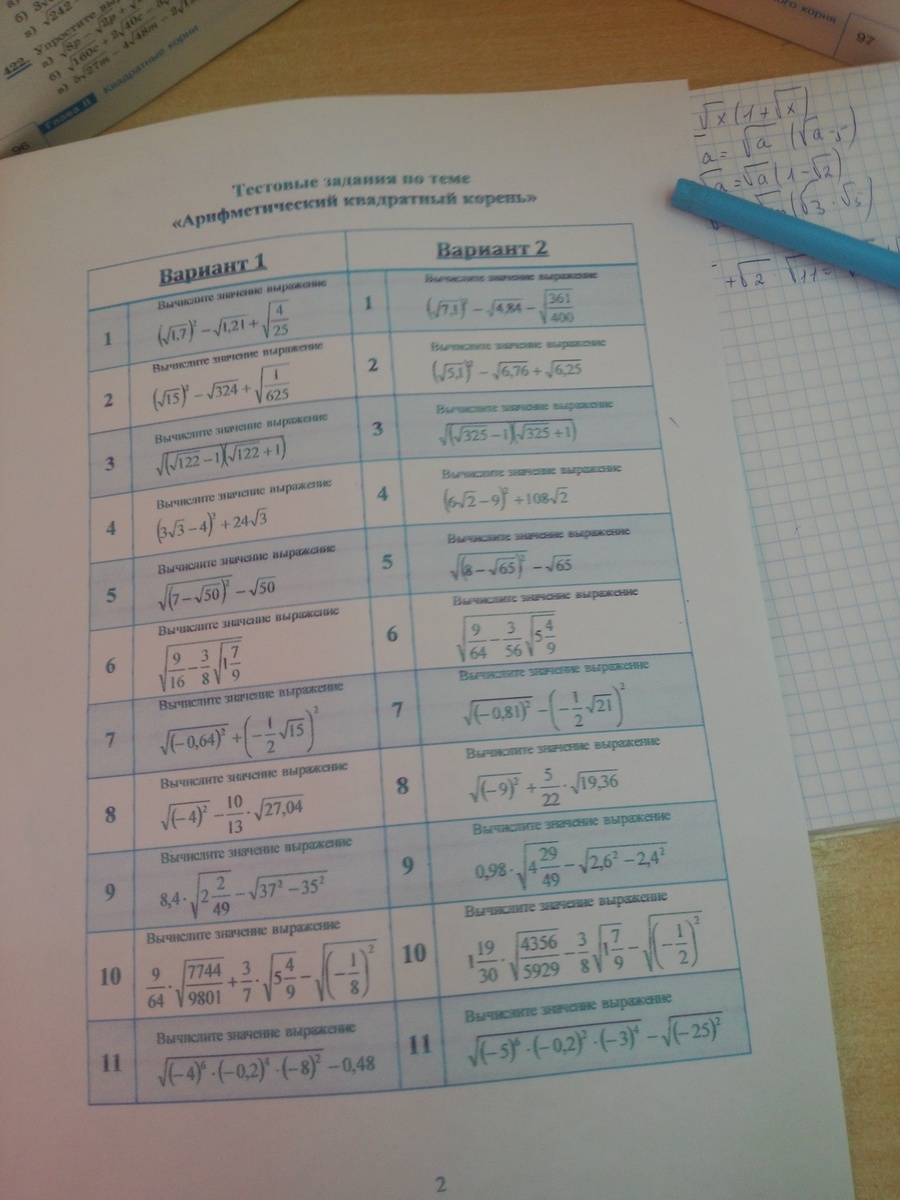 422. Упростите вы
а) √8p − √2p + √
б) √160c + 2√40c
в) 5√27m − 4√48m − 2√1
96 Глава II Квадратные корни
ого корня
97
√x(1+√x)
a = √a (√a-5)
√a = √a(1-√2)
(√3 · √5)
+√2 · √11 =
Тестовые задания по теме
«Арифметический квадратный корень»
Вариант 1
Вариант 2
1 Вычислите значение выражение
(√1,7)² − √1,21 + √(4/25)
1 Вычислите значение выражение
(√7,1)² − √4,84 − √(361/400)
2 Вычислите значение выражение
(√15)² − √324 + √(1/625)
2 Вычислите значение выражение
(√5,1)² − √6,76 + √6,25
3 Вычислите значение выражение
√((√122 − 1)(√122 + 1))
3 Вычислите значение выражение
√((√325 − 1)(√325 + 1))
4 Вычислите значение выражение
(3√3 − 4)² + 24√3
4 Вычислите значение выражение
(6√2 − 9)² + 108√2
5 Вычислите значение выражение
√((7 − √50)²) − √50
5 Вычислите значение выражение
√((8 − √65)²) − √65
6 Вычислите значение выражение
√(9/16 − 3/8 √(1 7/9))
6 Вычислите значение выражение
√(9/64 − 3/56 √(5 4/9))
7 Вычислите значение выражение
√((−0,64)²) + (−1/2 √15)²
7 Вычислите значение выражение
√((−0,81)²) − (−1/2 √21)²
8 Вычислите значение выражение
√((−4)²) − 10/13 · √27,04
8 Вычислите значение выражение
√((−9)²) + 5/22 · √19,36
9 Вычислите значение выражение
8,4 · √(2 2/49) − √(37² − 35²)
9 Вычислите значение выражение
0,98 · √(4 29/49) − √(2,6² − 2,4²)
10 Вычислите значение выражение
9/64 · √(7744/9801) + 3/7 · √(5 4/9) − √((−1/8)²)
10 Вычислите значение выражение
1 19/30 · √(4356/5929) − 3/8 √(1 7/9) − √((−1/2)²)
11 Вычислите значение выражение
√((−4)⁶ · (−0,2)⁴ · (−8)²) − 0,48
11 Вычислите значение выражение
√((−5)⁶ · (−0,2)² · (−3)⁴) − √((−25)²)
2